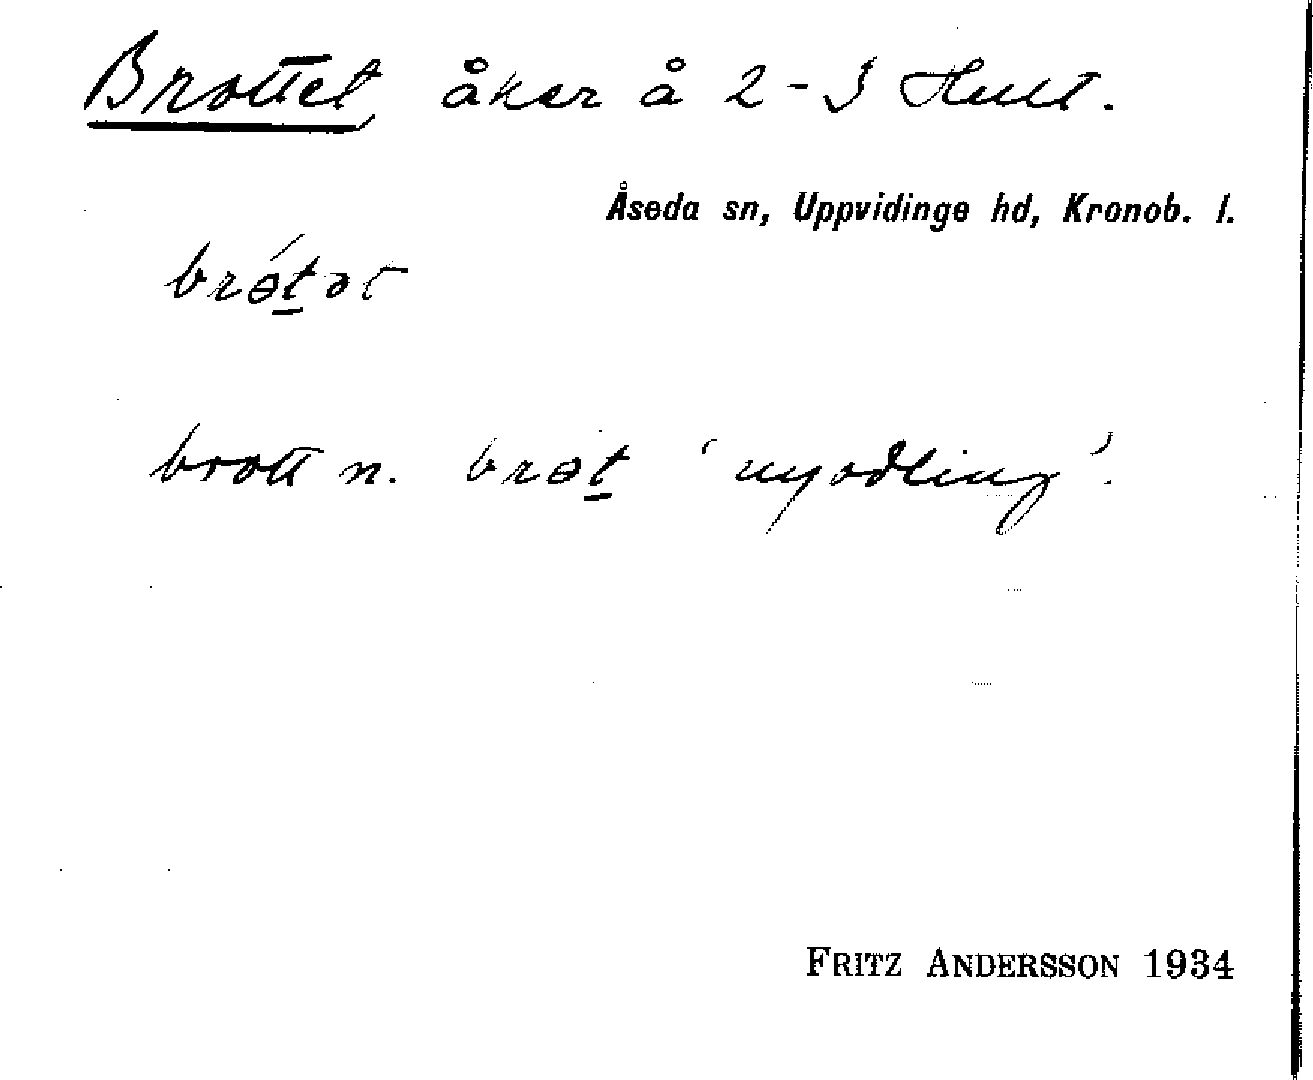 Brottet åker å 2-3 Hult.
Åseda sn, Uppvidinge hd, Kronob. l.
brɵ́t̲ət
brott n. brɵt̲ 'nyodling'.
FRITZ ANDERSSON 1934